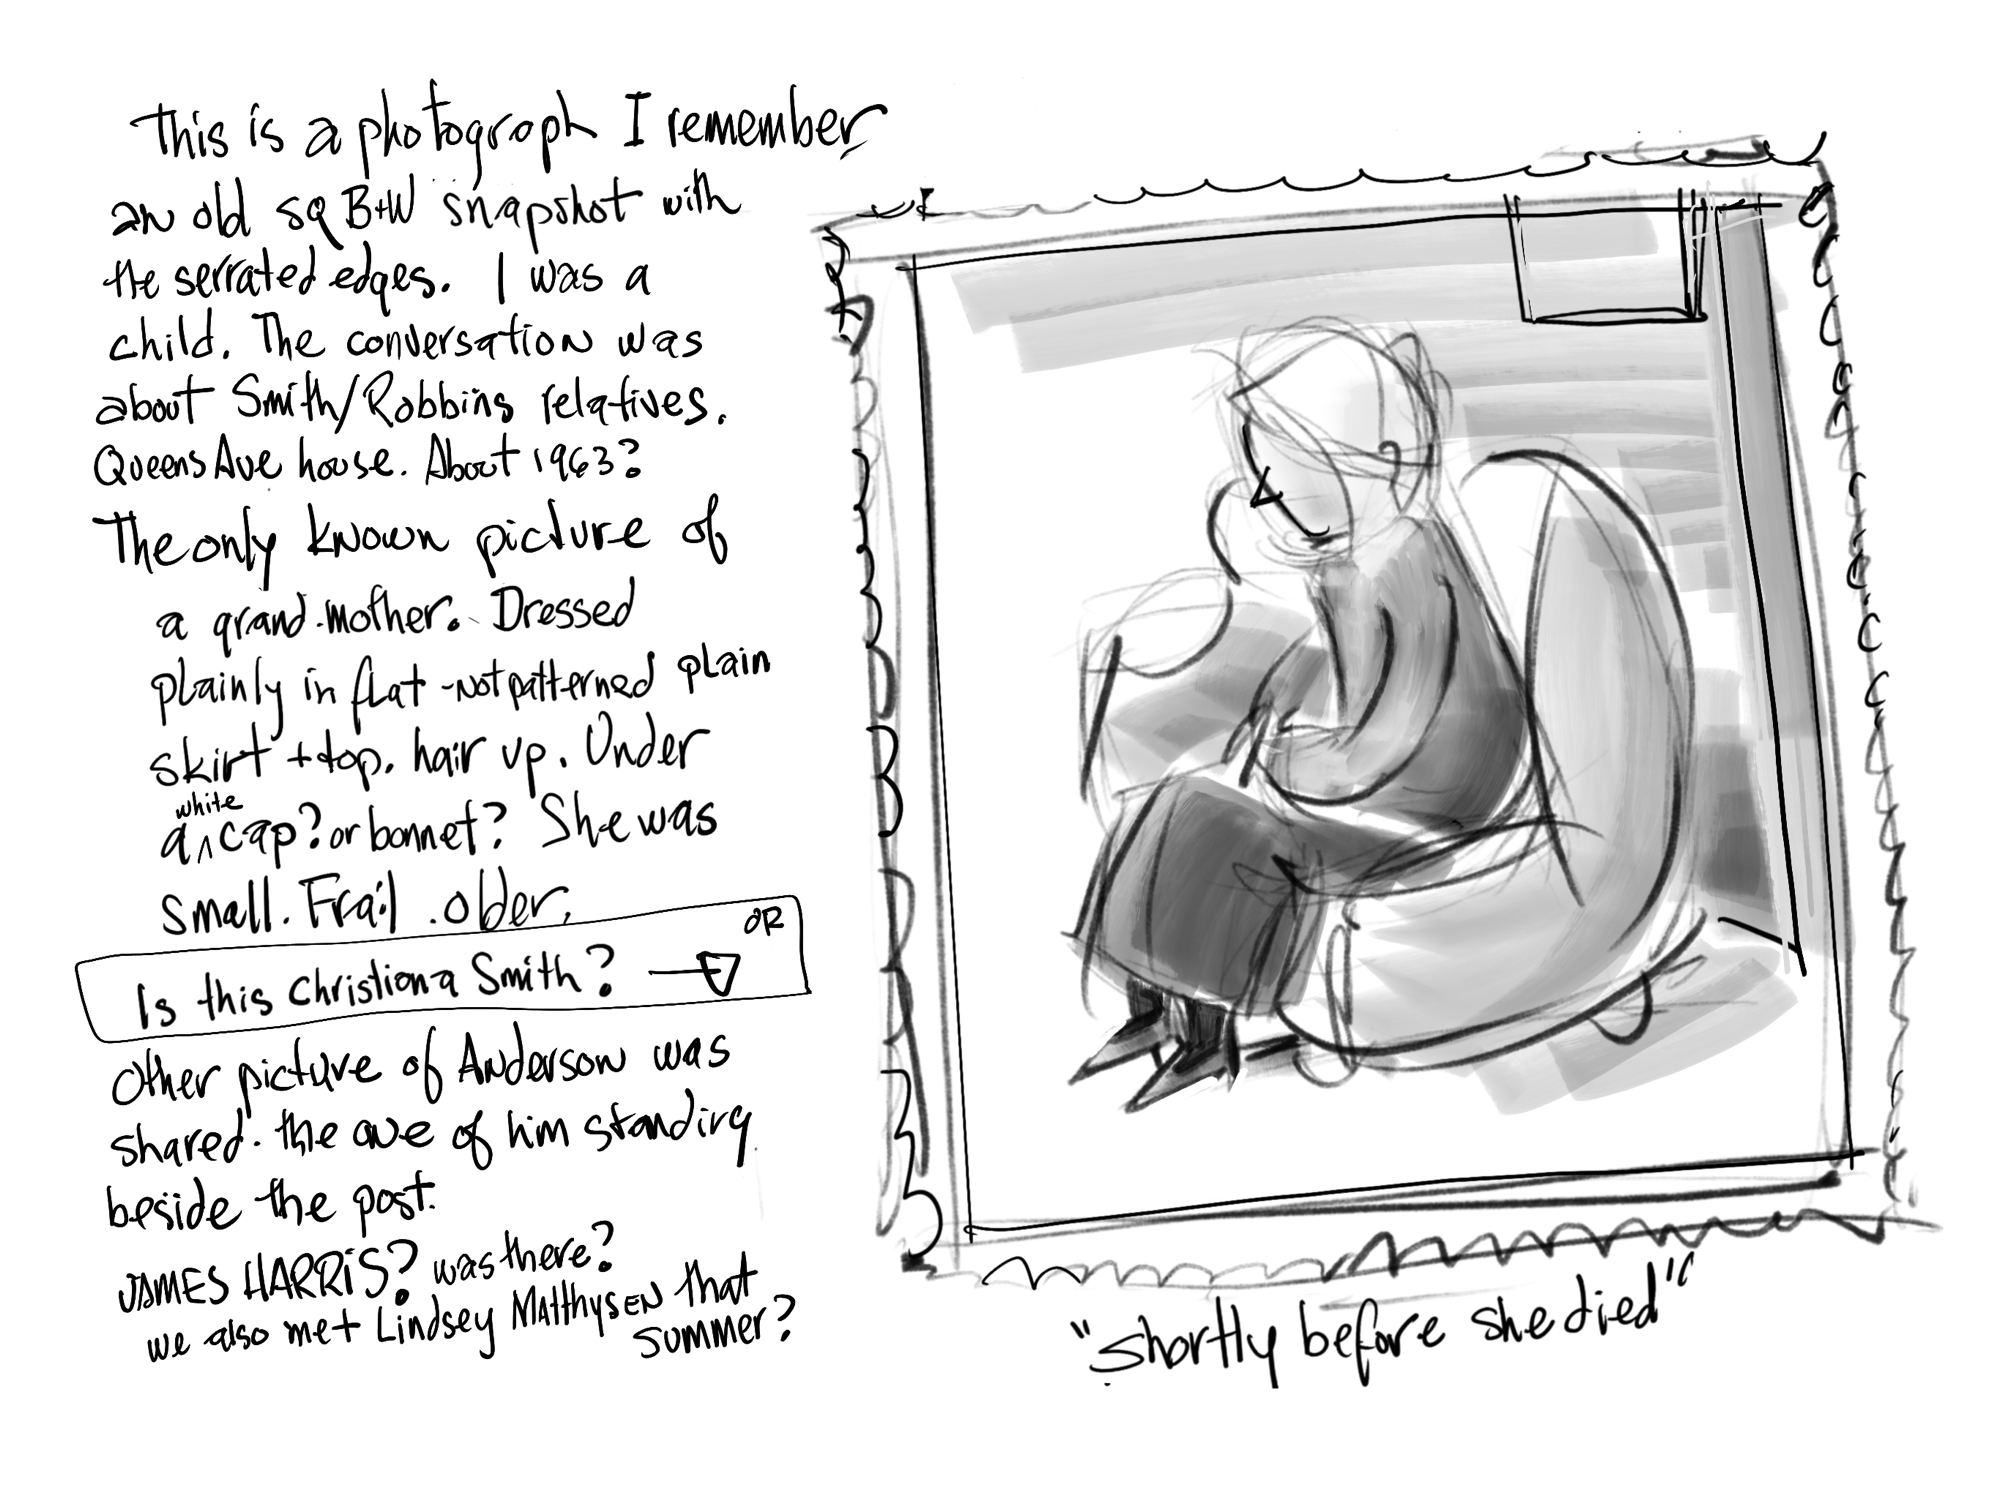 This is a photograph I remember,
an old sq B+W snapshot with
the serrated edges. I was a
child. The conversation was
about Smith/Robbins relatives.
Queens Ave house. About 1963?
The only known picture of
a grand-mother. Dressed
plainly in flat - not patterned plain
skirt + top. hair up. Under
white
a ^ cap? or bonnet? She was
small. Frail. older.
OR
Is this Christiona Smith?
Other picture of Anderson was
shared. the one of him standing
beside the post.
JAMES HARRIS? was there?
we also met Lindsey MATThysEN that
summer?
"shortly before she died"